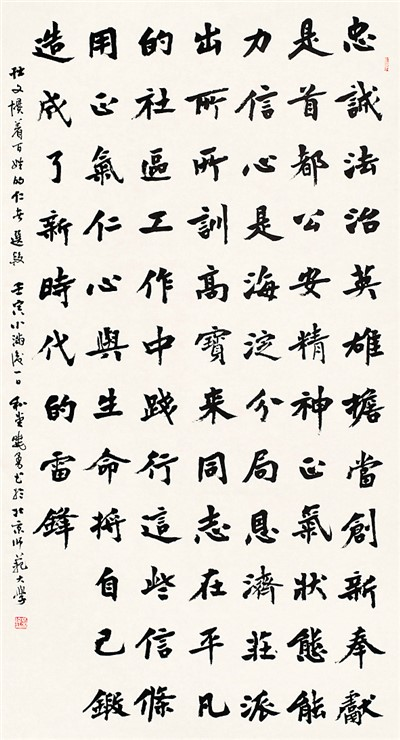 忠誠法治英雄擔當創新奉獻
是首都公安精神正氣狀態能
力信心是海淀分局恩濟莊派
出所所訓高寶來同志在平凡
的社區工作中踐行這些信條
用正氣仁心與生命將自己鍛
造成了新時代的雷鋒
杜文懷着百姓的仁者選段 壬寅小滿後一日 和堂 勇書於北京師範大學